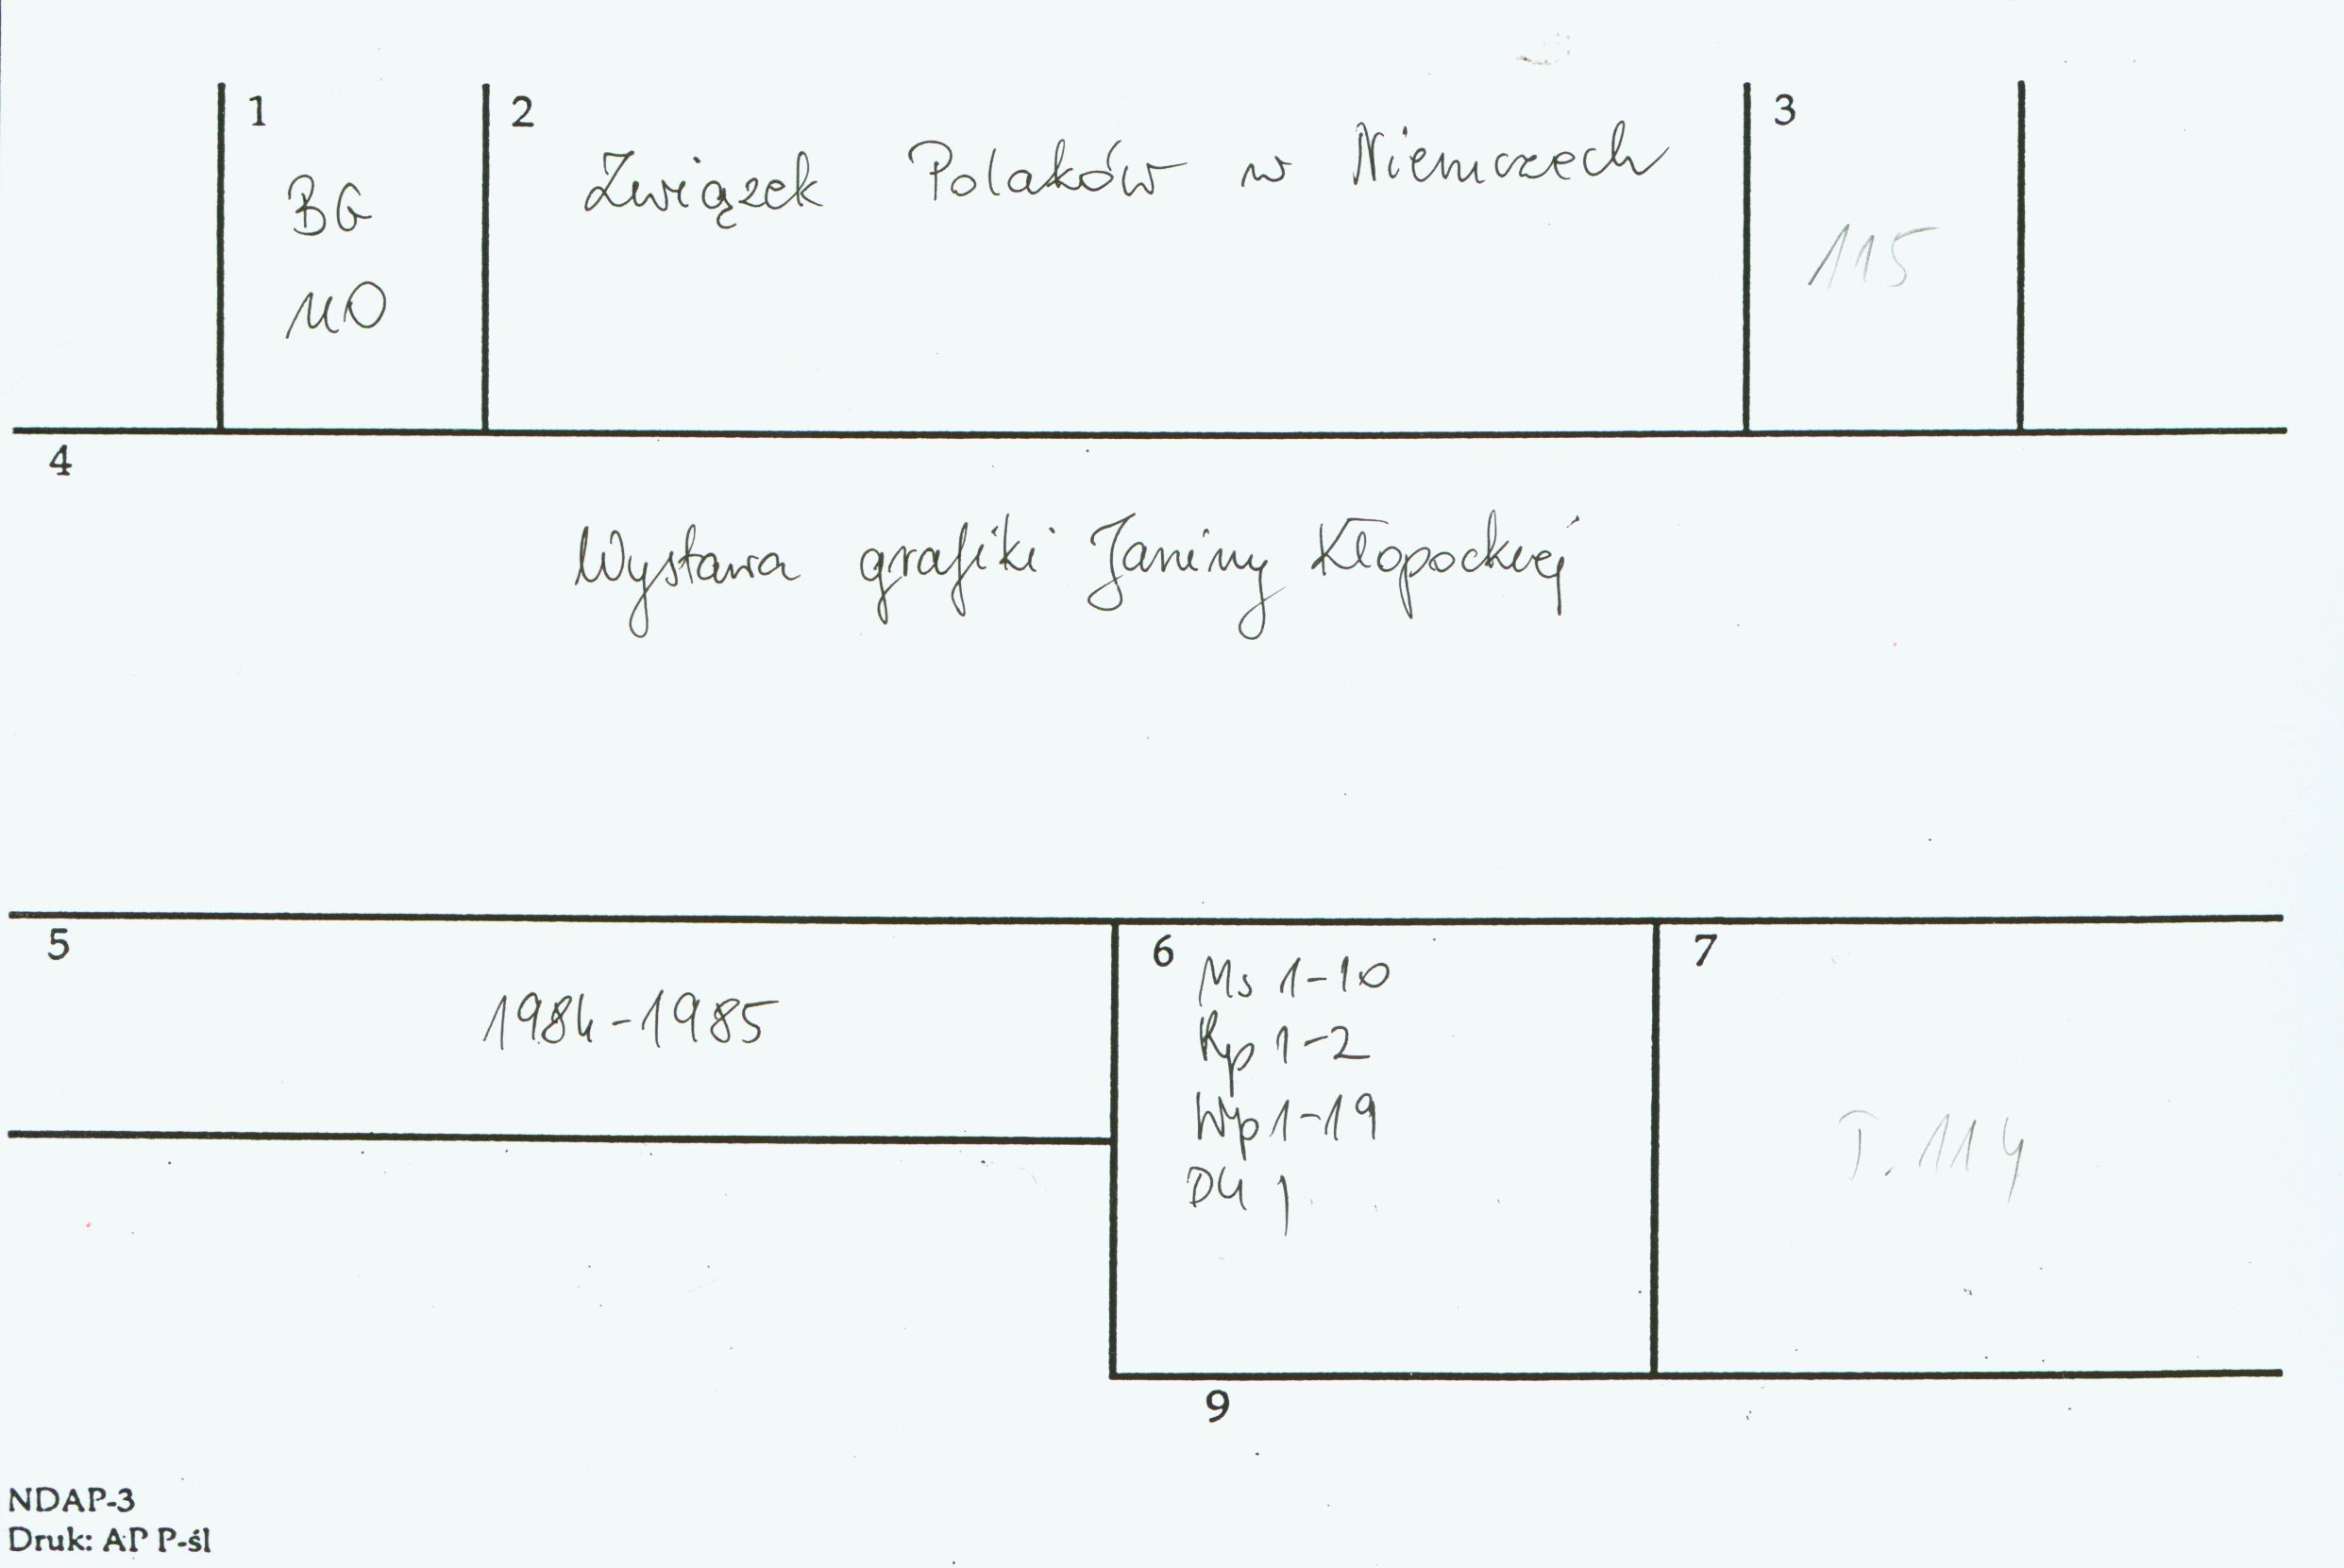 1
BG
MO
2
Związek Polaków w Niemczech
3
115
4
Wystawa grafiki Janiny Kłopockiej
5
1984-1985
6
Ms 1-10
Rp 1-2
Wp 1-19
DU 1
7
T. 114
9
NDAP-3
Druk: AP P-śl